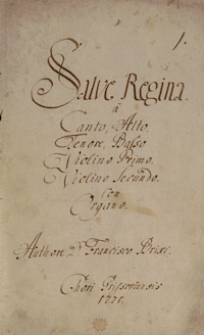 1.
Salve Regina.
à
Canto, Alto,
Tenore, Basso
Violino Primo
Violino Secundo.
Con
Organo.
Authore D. Francisco Brixi.
Chori
1771.